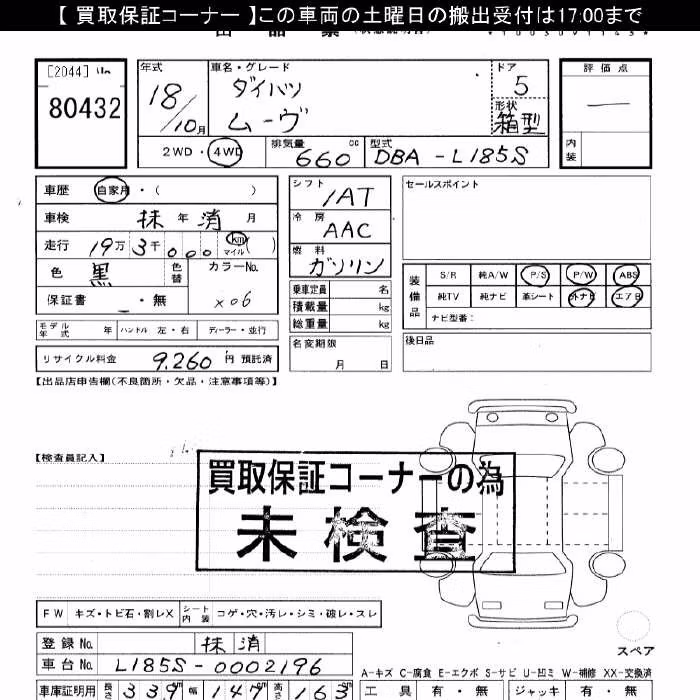 【 買取保証コーナー 】この車両の土曜日の搬出受付は17:00まで
[2044]
80432
年式
18/10月
車名・グレード
ダイハツ
ムーヴ
ドア
5
形状
箱型
評価点
—
内装
2WD・4WD
排気量
660 cc
型式
DBA-L185S
車歴 自家用・( )
車検 抹 年 消 月
走行 19万 3千 000 km マイル ( )
色 黒 色替
カラーNo.
X06
保証書 ・無
シフト
IAT
冷房
AAC
燃料
ガソリン
乗車定員 名
積載量 kg
総重量 kg
名変期限
月 日
セールスポイント
装備品
S/R 純A/W P/S P/W ABS
純TV 純ナビ 革シート 外ナビ エアB
ナビ型番:
後日品
モデル年式 年 ハンドル 左・右 ディーラー・並行
リサイクル料金 9,260 円 預託済
【出品店申告欄(不良箇所・欠品・注意事項等)】
【検査員記入】
買取保証コーナーの為
未検査
FW キズ・トビ石・割レX シート内装 コゲ・穴・汚レ・シミ・破レ・スレ
登録No. 抹消
車台No. L185S-0002196
車庫証明用 長さ 339 幅 147 高さ 163
スペア
A-キズ C-腐食 E-エクボ S-サビ U-凹ミ W-補修 XX-交換済
工具 有・無 ジャッキ 有・無